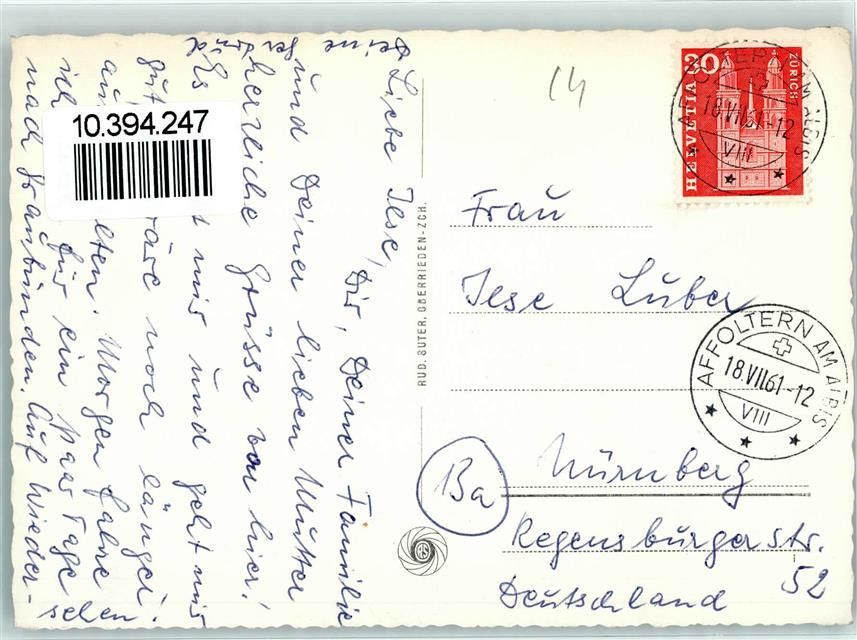 Liebe Ilse,
Dir, Deiner Familie
und Deiner lieben Mutter
herzliche Grüsse von hier!
Es mir und geht mir
gut wäre noch länger
Morgen fahre
ich für ein paar Tage
nach Graubünden. Auf Wieder-
sehen
Deine
10.394.247
14
RUD. SUTER, OBERRIEDEN-ZCH.
RS
HELVETIA
20
ZÜRICH
AFFOLTERN AM ALBIS
18.VII.61-12
VIII
Frau
Ilse Luber
AFFOLTERN AM ALBIS
18.VII.61-12
VIII
Ba
Nürnberg
Regensburgerstr.
52
Deutschland